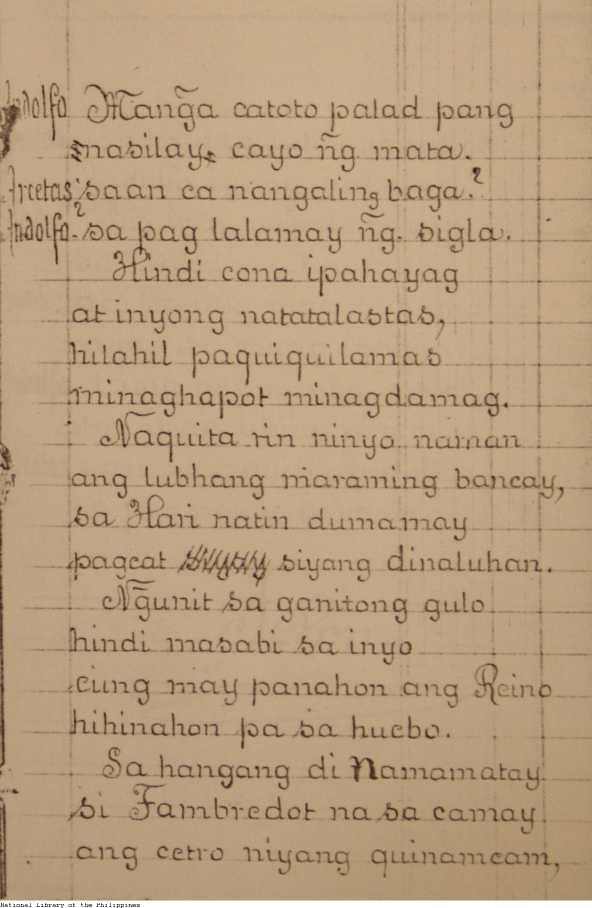 Indolfo Mang̃a catoto palad pang
masilay, cayo ñg mata.
Arcetas saan ca nangaling baga?
Indolfo. sa pag lalamay ñg. sigla.
Hindi cona ipahayag
at inyong natatalastas,
hilahil paquiquilamas
minaghapot minagdamag.
Naquita rin ninyo naman
ang lubhang maraming bancay,
sa Hari natin dumamay
pagcat siyang dinaluhan.
Ng̃unit sa ganitong gulo
hindi masabi sa inyo
cung may panahon ang Reino
hihinahon pa sa huebo.
Sa hangang di Namamatay
si Fambredot na sa camay
ang cetro niyang quinamcam,
National Library of the Philippines